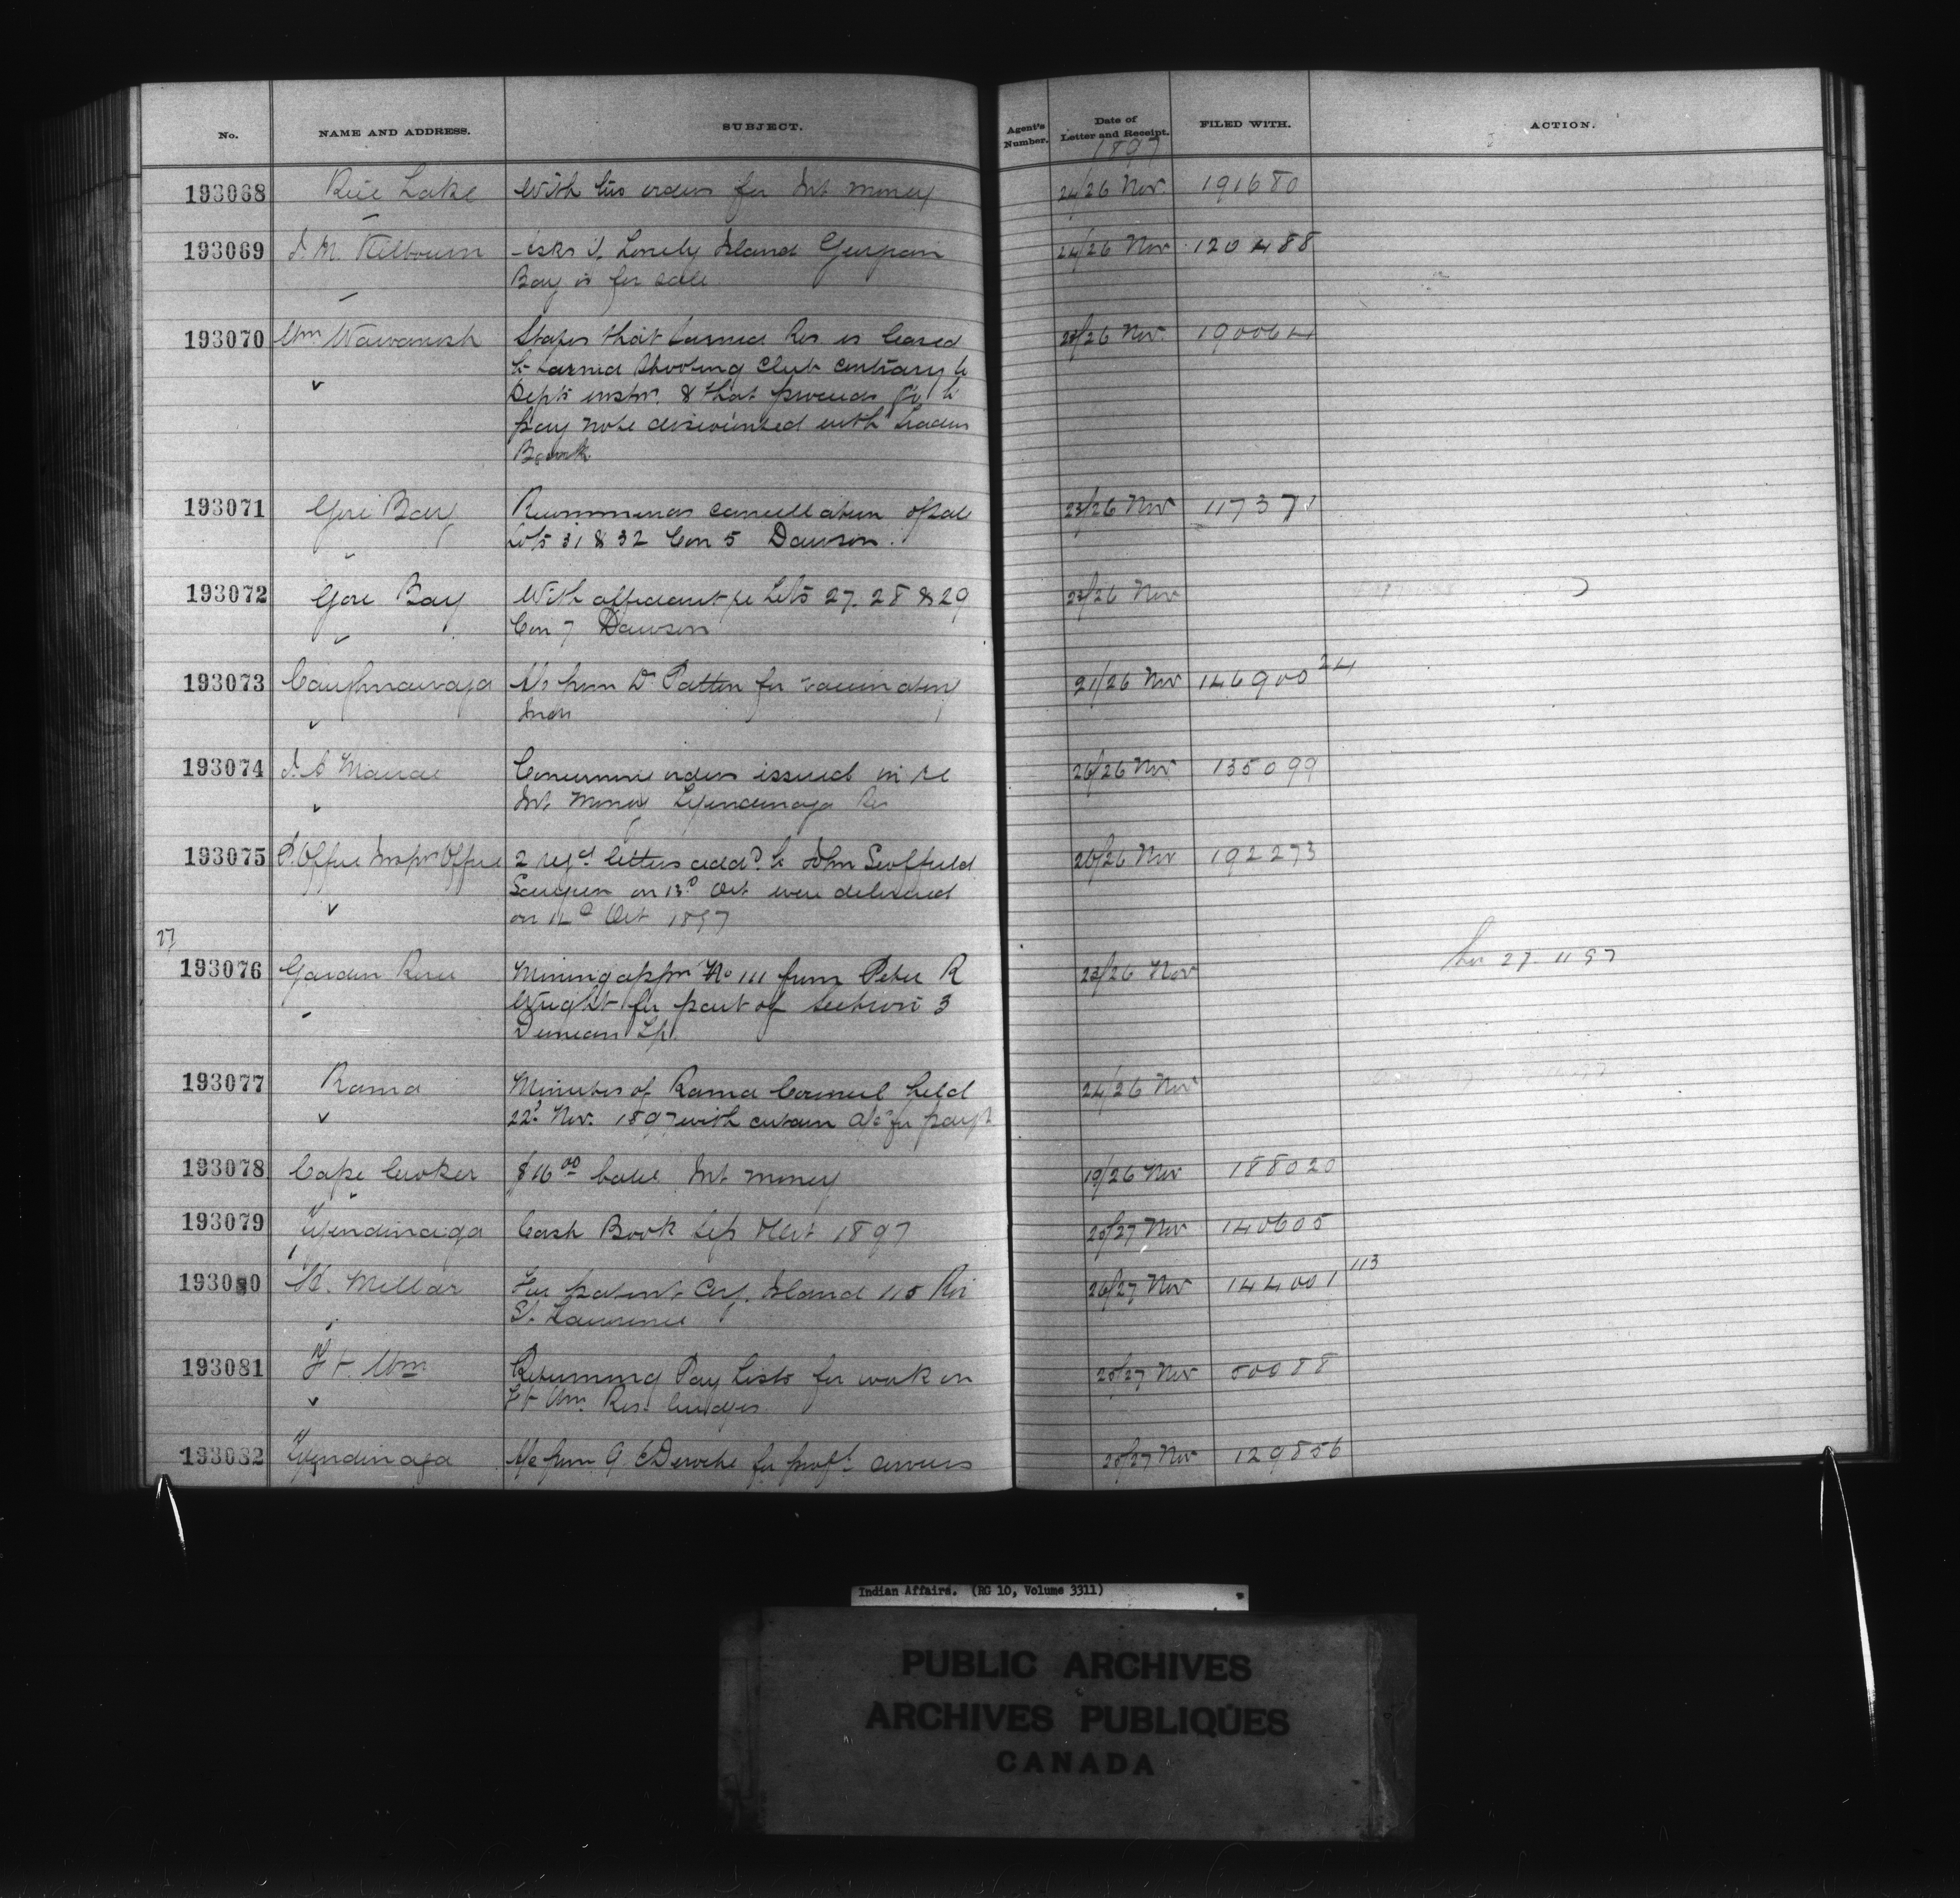 No. NAME AND ADDRESS. SUBJECT. Agent's Number. Date of Letter and Receipt. FILED WITH. ACTION.
1897
193068 Rice Lake With his orders for Int money 24/26 Nov 191680
193069 Kilbourn Asks if Lonely Island Georgian 24/26 Nov 120488
Bay is for sale
193070 Wm Wawanosh States that Sarnia Res is leased 26 Nov. 190064
to Sarnia Shooting Club contrary to
Depts instr. & that proceeds go to
pay note discounted with Traders
Bank
193071 Gore Bay Recommends cancellation of sale 23/26 Nov 117371
Lots 31 & 32 Con 5 Dawson.
193072 Gore Bay With affidavit re Lots 27. 28 & 29 23/26 Nov
Con 7 Dawson
193073 Caughnawaga A/c from Dr Patton for vaccinating 21/26 Nov 146900 24
Inds
193074 Concerning orders issued in re 26/26 Nov 135099
Int Money Tyendinaga Res
193075 P. Office Inspr Office 2 regd letters addd to John Scoffield 26/26 Nov 192273
Saugeen on 13th Oct were delivered
on 14th Oct 1897
27
193076 Garden River Mining appn No 111 from Peter R 23/26 Nov 27.11.97
Wright for part of Section 3
Duncan Tp.
193077 Rama Minutes of Rama Council held 24/26 Nov
22d Nov. 1897 with certain a/cs for paymt
193078 Cape Croker $16 00 balce Int money 19/26 Nov 188020
193079 Tyendinaga Cash Book Sep & Oct 1897 25/27 Nov 140605
193080 Millar For patent Island 115 Riv 26/27 Nov 144001 113
St. Lawrence
193081 Ft. Wm Returning Pay Lists for work on 25/27 Nov 50088
Ft Wm. Res. bridges
193082 Tyendinaga A/c from Deroche for profl. services 25/27 Nov 129856
Indian Affairs. (RG 10, Volume 3311)
PUBLIC ARCHIVES
ARCHIVES PUBLIQUES
CANADA